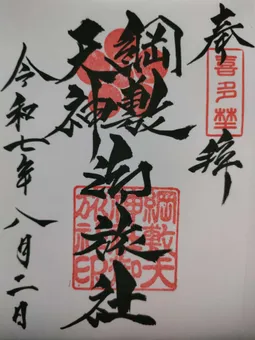 奉拝
喜多埜
綱敷
天神
御旅社
綱敷天
神御
旅社印
令和七年八月二日